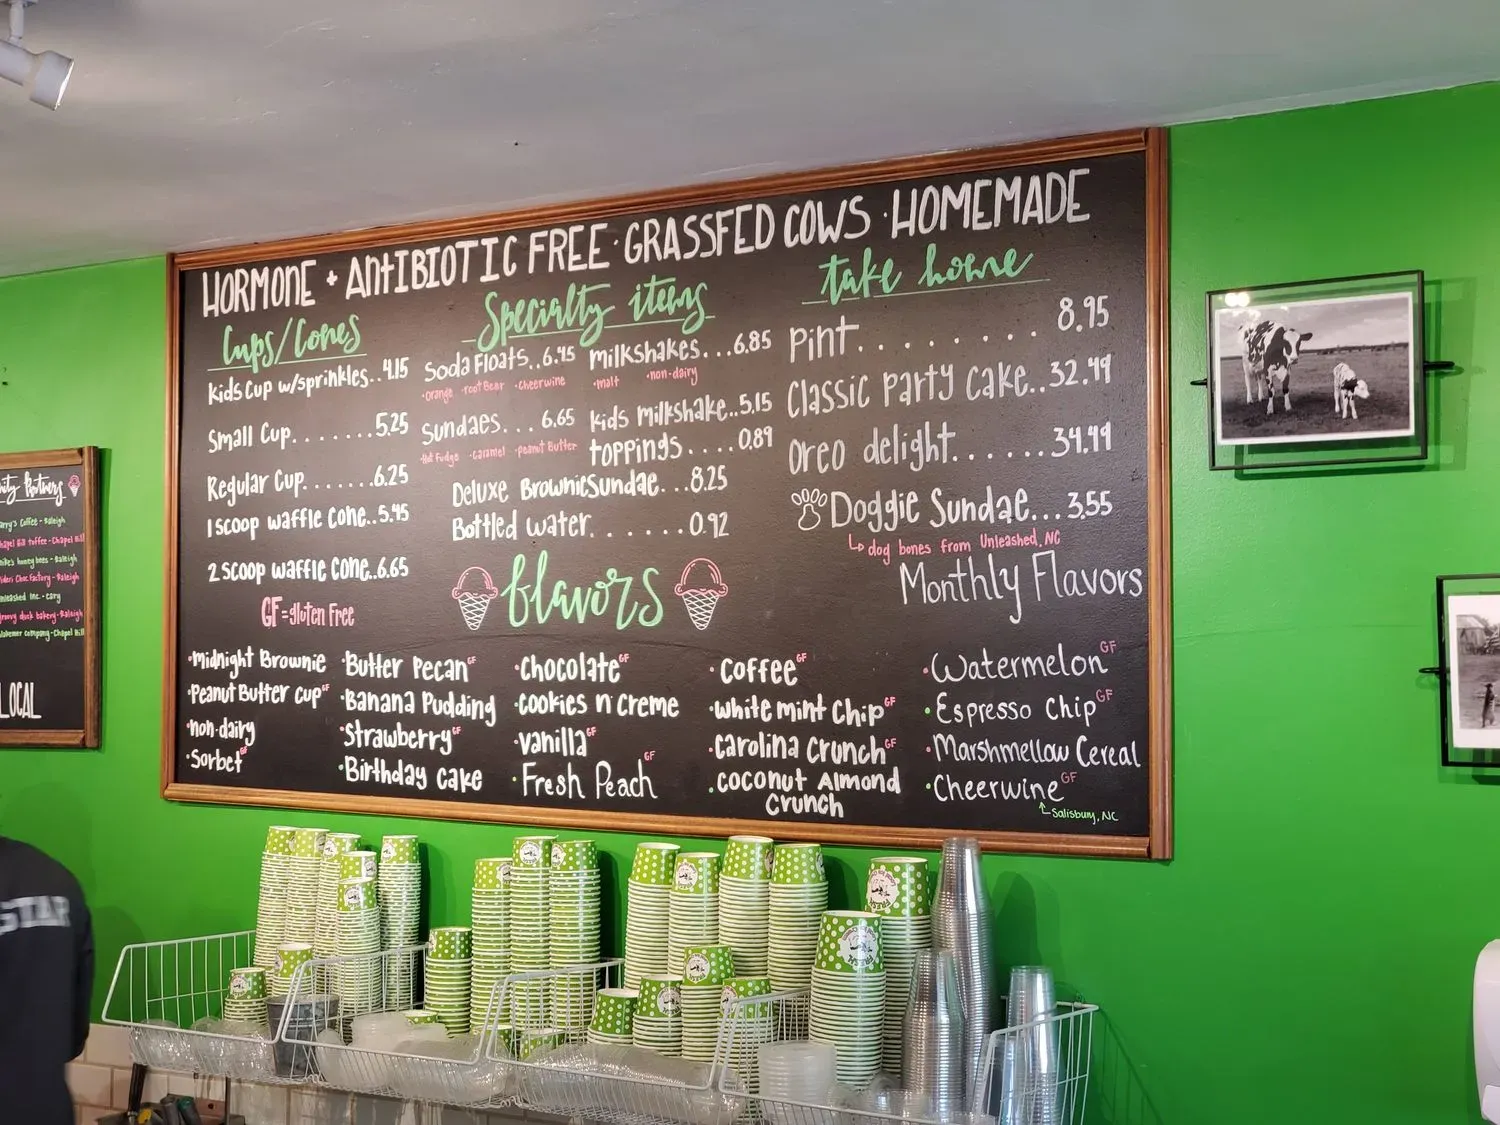 HORMONE + ANTIBIOTIC FREE · GRASSFED COWS · HOMEMADE
Cups/Cones
Kids Cup w/sprinkles..4.15
Small Cup.......5.25
Regular Cup.......6.25
1 scoop waffle cone..5.45
2 scoop waffle cone..6.65
GF=gluten free
Specialty items
Soda Floats..6.45
·orange ·root Beer ·cheerwine
Sundaes...6.65
·Hot Fudge ·caramel ·peanut Butter
milkshakes...6.85
·malt ·non-dairy
Kids milkshake..5.15
toppings....0.89
Deluxe Brownie Sundae...8.25
Bottled water......0.92
take home
Pint........8.95
Classic Party Cake..32.49
Oreo delight......34.49
Doggie Sundae...3.55
dog bones from Unleashed, NC
flavors
·Midnight Brownie
·Peanut Butter Cup GF
·non-dairy
·Sorbet GF
·Butter Pecan GF
·Banana Pudding
·Strawberry GF
·Birthday Cake
·Chocolate GF
·Cookies n' Creme
·Vanilla GF
·Fresh Peach GF
·Coffee GF
·White mint Chip GF
·Carolina Crunch GF
·Coconut Almond
Crunch
Monthly Flavors
·Watermelon GF
·Espresso Chip GF
·Marshmellow Cereal
·Cheerwine GF
Salisbury, NC
Partners
Coffee - Raleigh
toffee - Chapel Hill
honey bees - Raleigh
Choc Factory - Raleigh
unleashed inc. - Cary
duck bakery - Raleigh
company - Chapel Hill
LOCAL
STAR